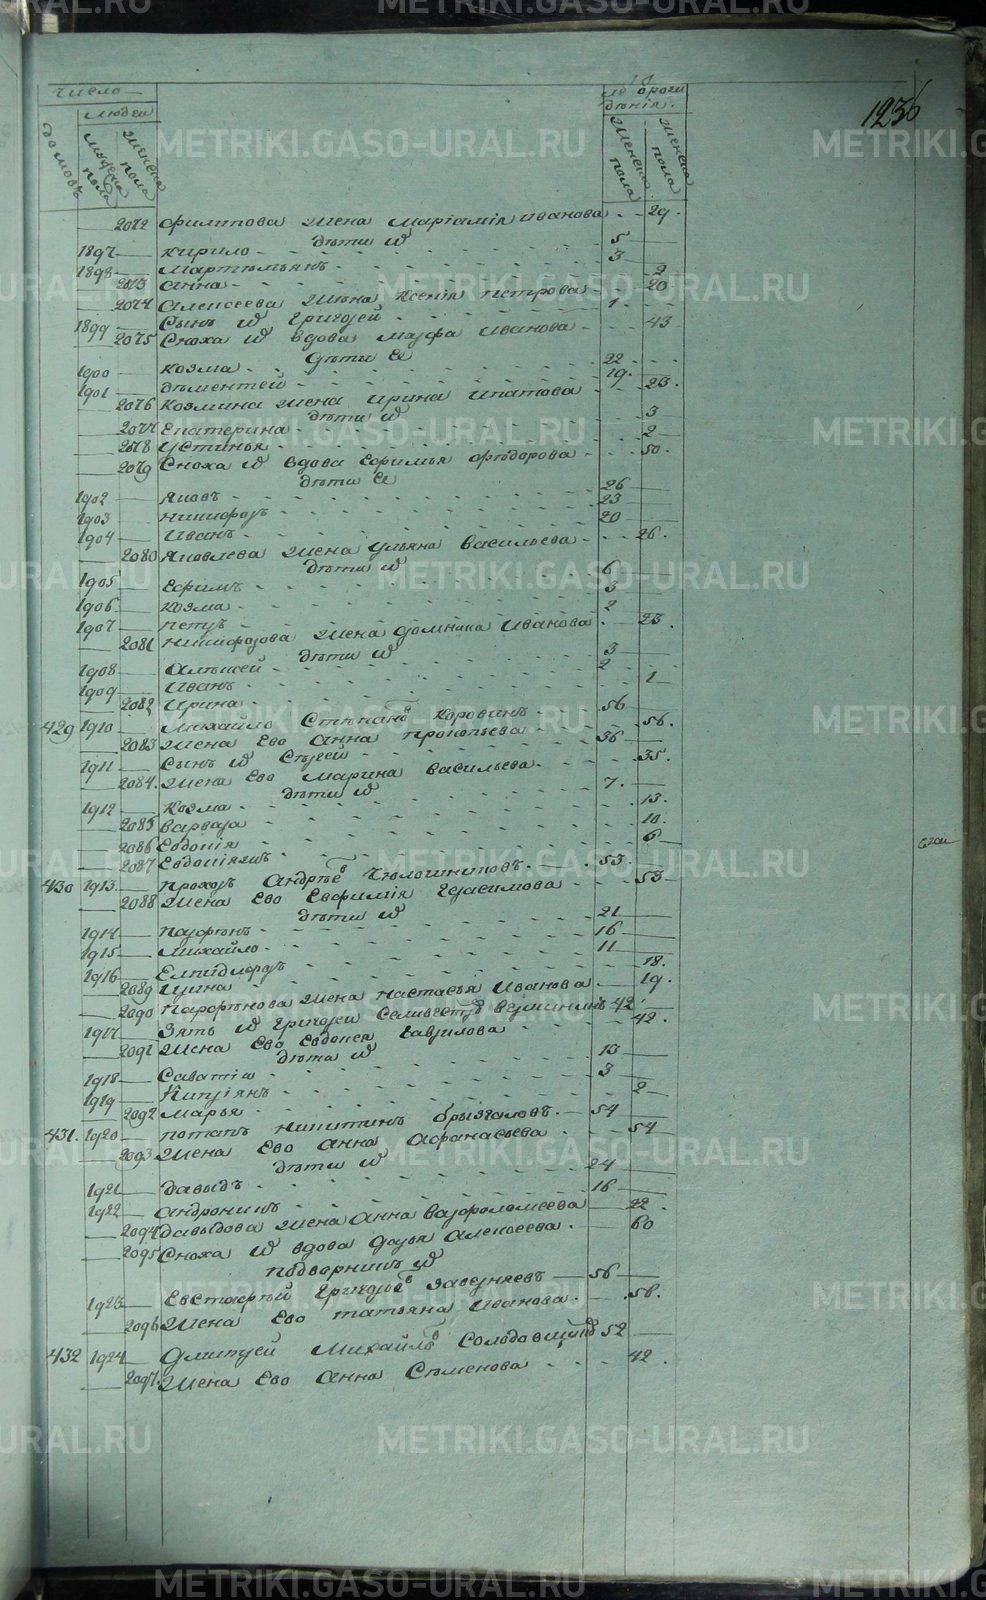 1236
число
людей
лѣ от рожи
дѣнiя
домовъ
мужеска пола
женска пола
мужеска пола
женска пола
2072 Филипова жена Марiамiя Иванова 29
дѣти их
1897 Кирило 5
1898 Мартемьянъ 3
2073 Анна 2
2074 Алексеева жена Ксенiя Петрова 20
1899 Сынъ их Григорей 1
2075 Сноха их вдова Марфа Иванова 43
дѣти Ея
1900 Козма 22
1901 Дѣментей 19
2076 Козмина жена Ирина Ипатова 23
дѣти их
2077 Екатерина 3
2078 Устинья 2
2079 Сноха их вдова Ефимья Фѣдорова 50
дѣти Ея
1902 Яковъ 26
1903 Никифоръ 23
1904 Иванъ 20
2080 Яковлева жена Ульяна Васильева 26
дѣти их
1905 Ефимъ 6
1906 Козма 3
1907 Петръ 2
2081 Никифорова жена Домника Иванова 23
дѣти их
1908 Алѣксей 3
1909 Иванъ 2
2082 Ирина 1
429 1910 Михайло Стѣпановъ Коровинъ 56
2083 Жена Ево Анна Прокопьева 56
1911 Сынъ их Сѣргей 36
2084 Жена Ево Марина Васильева 35
дѣти их
1912 Козма 7
2085 Варвара 13
2086 Евдокiя 10
2087 Евдокiяжъ 6
430 1913 Прохоръ Андрѣевъ Чюлошниковъ 53
2088 Жена Ево Евфимiя Герасимова 53
дѣти их
1914 Парфѣнъ 21
1915 Михайло 16
1916 Елпидифоръ 11
2089 Ирина 18
2090 Парфѣнова жена Настасья Иванова 19
1917 Зять их Григорей Селивестровъ 42
2091 Жена Ево Евдокея Гаврилова 42
дѣти их
1918 Саватiй 13
1919 Кипрiянъ 3
2092 Марья 2
431 1920 Потапъ Никитинъ Брызгаловъ 54
2093 Жена Ево Анна Афанасьева 54
дѣти их
1921 Давыдъ 24
1922 Андроникъ 16
2094 Давыдова жена Анна Варфоломеева 22
2095 Сноха их вдова Дарья Алексеева 60
подворникъ их
1923 Евстафей Григорьевъ Заверняевъ 56
2096 Жена Ево Татьяна Иванова 58
432 1924 Дмитрей Михайловъ 52
2097 Жена Ево Анна Сѣменова 42
METRIKI.GASO-URAL.RU